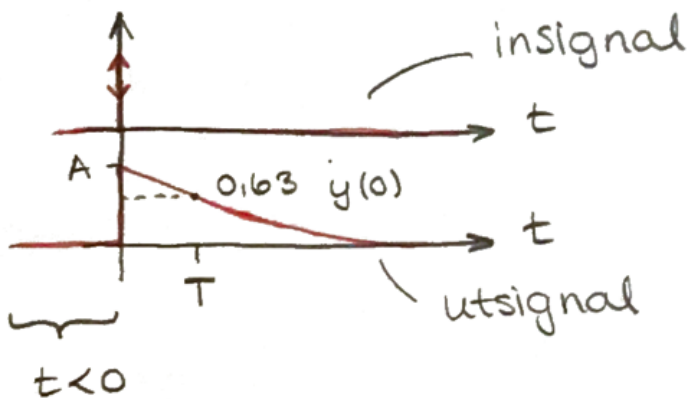 insignal
t
A
0,63 y(0)
t
T
utsignal
t<0